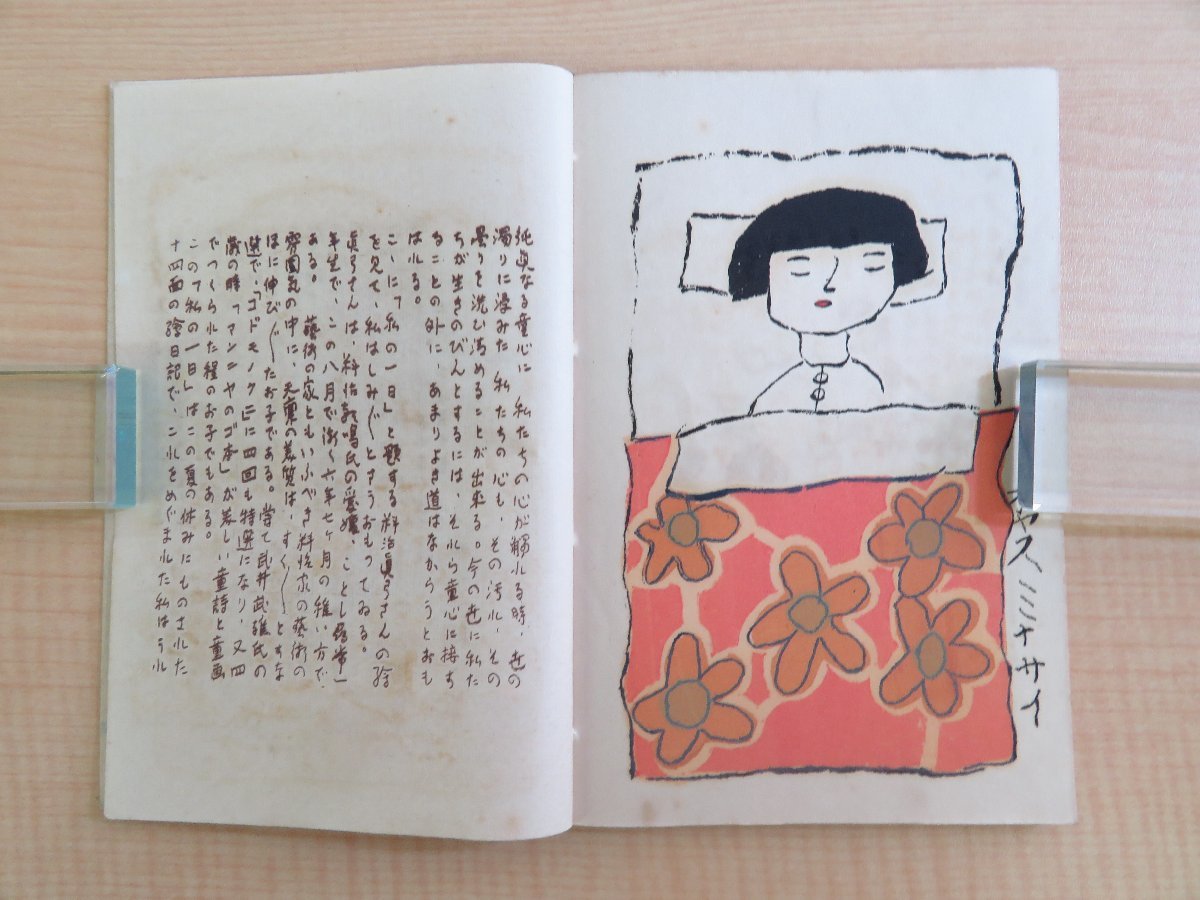 純真なる童心に、私たちの心が触れる時、世の
濁りに浸みた私たちの心も、その汚れ、その
曇りを洗ひ清めることが出来る。今の世に私た
ちが生きのびんとするには、それら童心に接す
ることの外に、あまりよき道はなからうとおも
はれる。
こゝにて「私の一日」と題する料治真弓さんの絵
を見て、私はしみ〴〵とさうおもってゐる。
真弓さんは、料治朝鳴氏の愛嬢、ことし尋常一
年生で、この八月で漸く六年七ヶ月の稚い方で
ある。藝術の家ともいふべき料治家の藝術の
雰囲気の中に、天稟の美質は、すく〳〵とすなほ
に伸び〴〵したお子である。嘗て武井武雄氏の
選で、「コドモノクニ」に四回も特選になり、又四
歳の時「マンニヤのゴ本」が美しい童詩と童画
でつくられた程のお子でもある。
このて「私の一日」はこの夏の休みにものされた
十四面の絵日記で、これをめぐまれた私はうれ
ヤスミナサイ